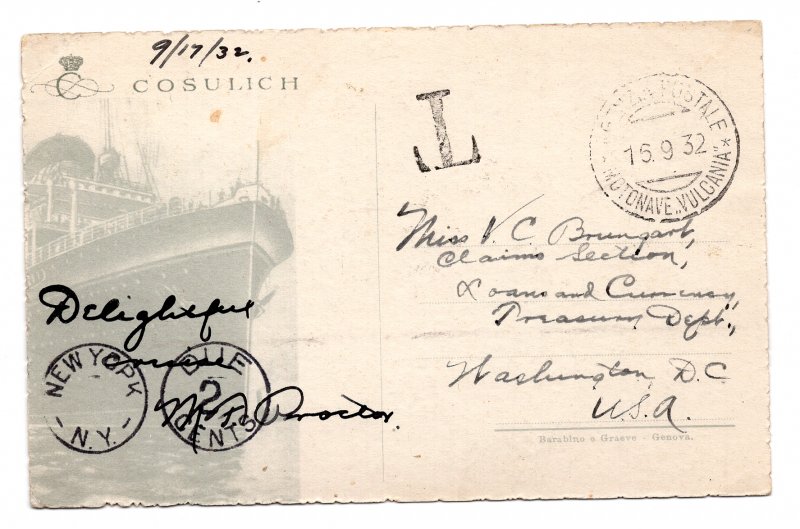 9/17/32.
C
COSULICH
T
AGENZIA POSTALE
16.9 32
* MOTONAVE „VULCANIA„ *
Miss V. C. Brungart,
Claims Section,
Loans and Currency,
Treasury Dept.,
Washington, D.C.
U.S.A.
Delightful
NEW YORK
N.Y.
DUE
2
CENTS
Proctor.
Barabino e Graeve - Genova.